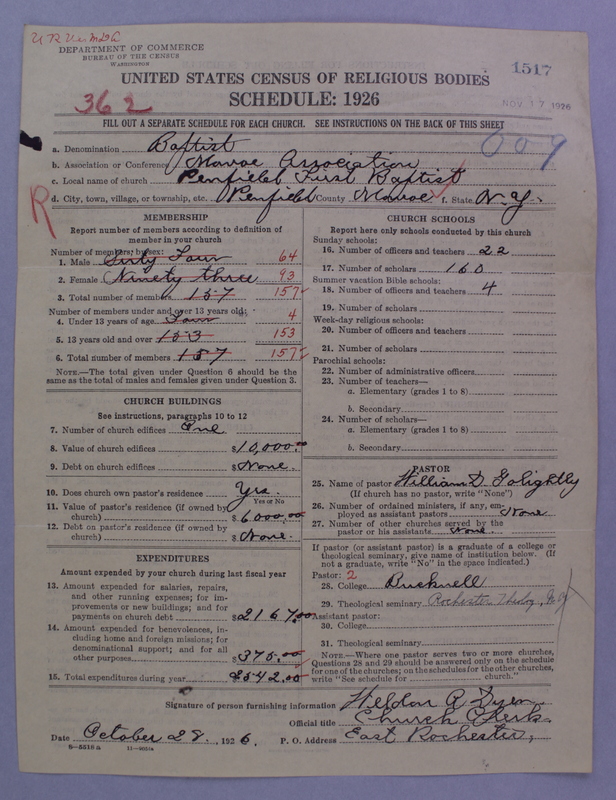 DEPARTMENT OF COMMERCE
BUREAU OF THE CENSUS
WASHINGTON
1517
UNITED STATES CENSUS OF RELIGIOUS BODIES
362
SCHEDULE: 1926
NOV 17 1926
FILL OUT A SEPARATE SCHEDULE FOR EACH CHURCH. SEE INSTRUCTIONS ON THE BACK OF THIS SHEET
a. Denomination Baptist
009
b. Association or Conference Monroe Association
c. Local name of church Penfield First Baptist
R
d. City, town, village, or township, etc. Penfield County Monroe f. State N.Y.
MEMBERSHIP
Report number of members according to definition of
member in your church
Number of members, by sex:
1. Male Sixty Four 64
2. Female Ninety three 93
3. Total number of members 157 157
Number of members under and over 13 years old:
4. Under 13 years of age Four 4
5. 13 years old and over 153 153
6. Total number of members 157 157
NOTE.—The total given under Question 6 should be the
same as the total of males and females given under Question 3.
CHURCH BUILDINGS
See instructions, paragraphs 10 to 12
7. Number of church edifices One
8. Value of church edifices $10,000.00
9. Debt on church edifices $ None.
10. Does church own pastor's residence Yes.
Yes or No
11. Value of pastor's residence (if owned by
church) $6000.00
12. Debt on pastor's residence (if owned by
church) $ None.
EXPENDITURES
Amount expended by your church during last fiscal year
13. Amount expended for salaries, repairs,
and other running expenses; for im-
provements or new buildings; and for
payments on church debt $2167.00
14. Amount expended for benevolences, in-
cluding home and foreign missions; for
denominational support; and for all
other purposes $375.00
15. Total expenditures during year $2542.00
CHURCH SCHOOLS
Report here only schools conducted by this church
Sunday schools:
16. Number of officers and teachers 22
17. Number of scholars 160
Summer vacation Bible schools:
18. Number of officers and teachers 4
19. Number of scholars
Week-day religious schools:
20. Number of officers and teachers
21. Number of scholars
Parochial schools:
22. Number of administrative officers
23. Number of teachers—
a. Elementary (grades 1 to 8)
b. Secondary
24. Number of scholars—
a. Elementary (grades 1 to 8)
b. Secondary
PASTOR
25. Name of pastor William D. Golightly
(If church has no pastor, write "None")
26. Number of ordained ministers, if any, em-
ployed as assistant pastors None
27. Number of other churches served by the
pastor or his assistants None.
If pastor (or assistant pastor) is a graduate of a college or
theological seminary, give name of institution below. (If
not a graduate, write "No" in the space indicated.)
Pastor: 2
28. College Bucknell
29. Theological seminary Rochester Theolog.
Assistant pastor:
30. College
31. Theological seminary
NOTE.—Where one pastor serves two or more churches,
Questions 28 and 29 should be answered only on the schedule
for one of the churches; on the schedules for the other churches,
write "See schedule for church."
Signature of person furnishing information
Official title Church Clerk.
Date October 28, 1926. P. O. Address East Rochester,